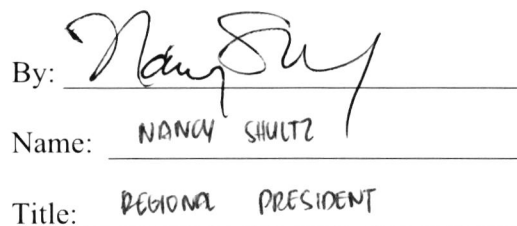 By: Nancy Shultz
Name: NANCY SHULTZ
Title: REGIONAL PRESIDENT